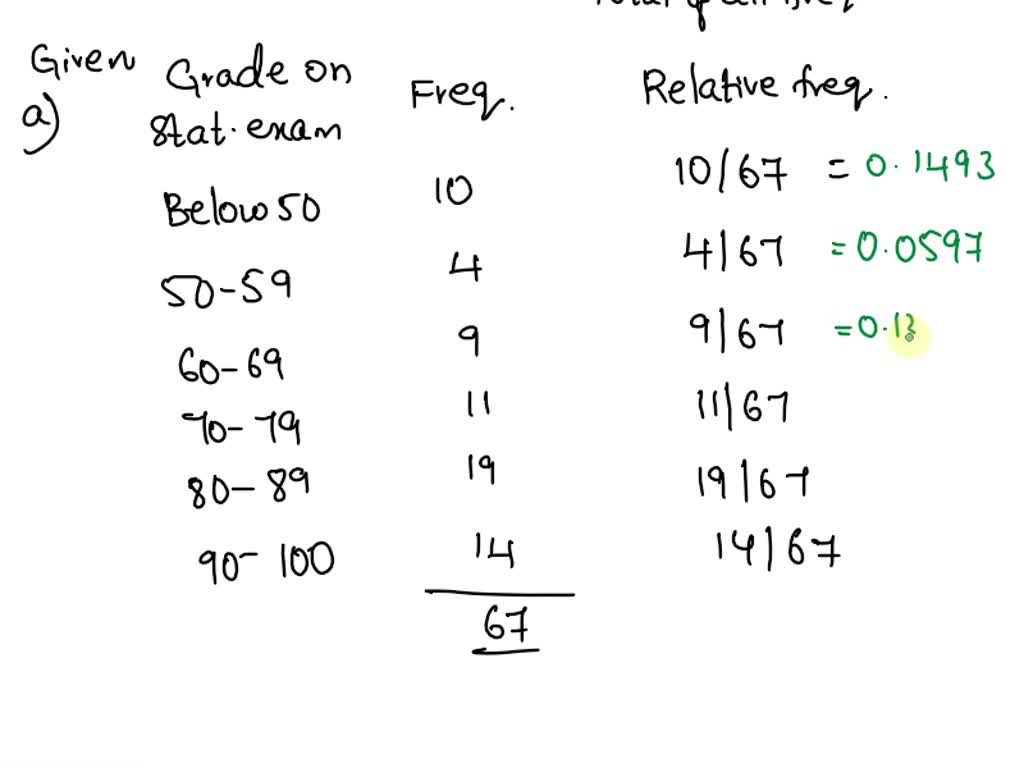 Given
a)
Grade on Freq. Relative freq.
Stat. exam
Below 50 10 10/67 = 0.1493
50-59 4 4/67 = 0.0597
60-69 9 9/67 = 0.13
70-79 11 11/67
80-89 19 19/67
90-100 14 14/67
67